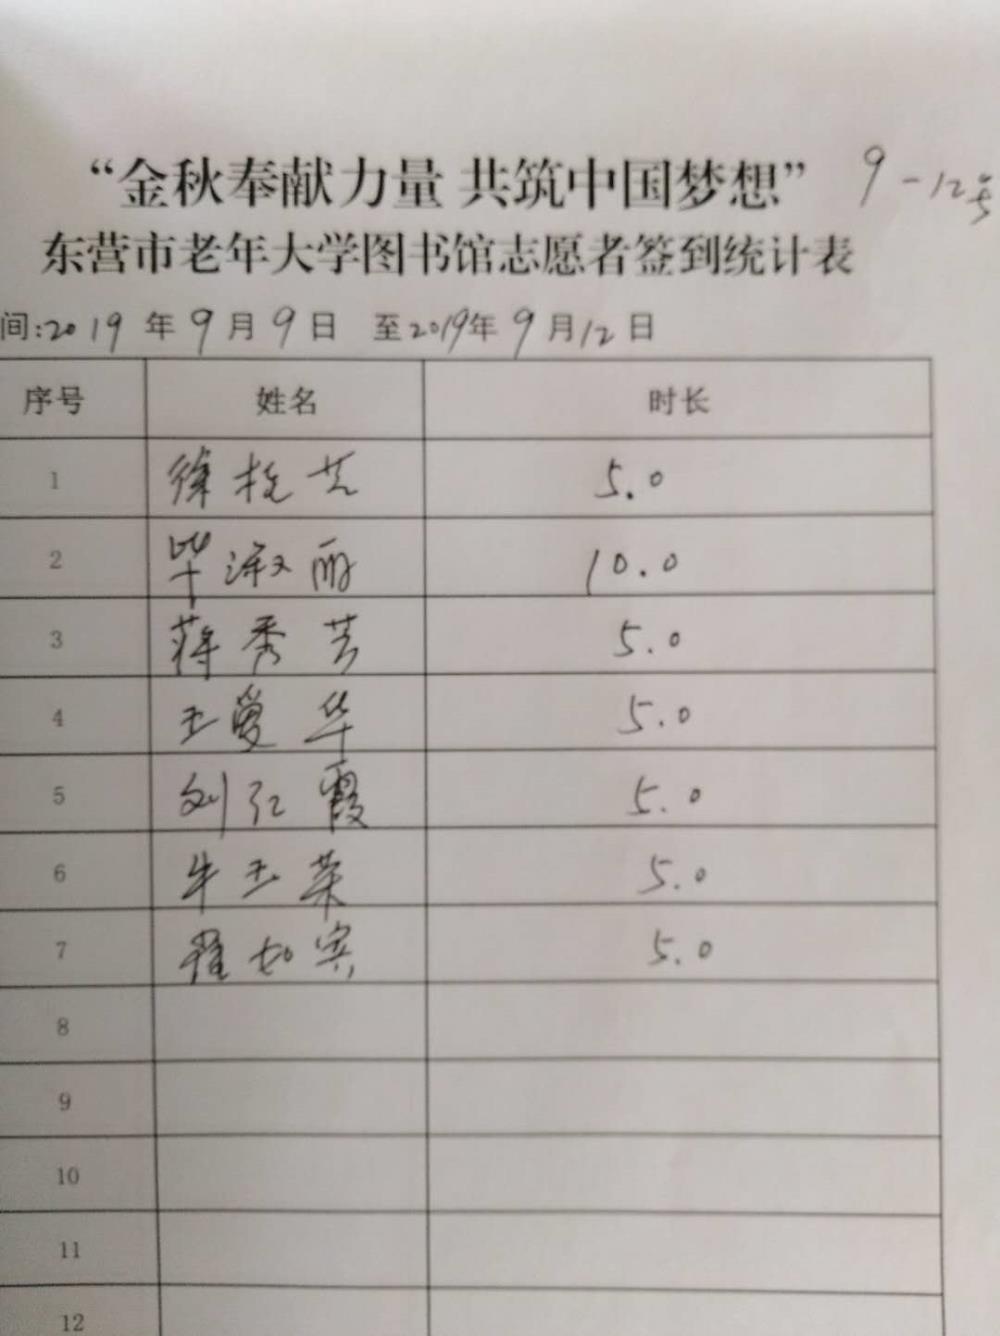 “金秋奉献力量 共筑中国梦想” 9-12号
东营市老年大学图书馆志愿者签到统计表
间:2019年9月9日 至2019年9月12日
序号 姓名 时长
1 徐桂芝 5.0
2 毕淑丽 10.0
3 蒋秀芳 5.0
4 王爱华 5.0
5 刘红霞 5.0
6 牛玉荣 5.0
7 如宾 5.0
8
9
10
11
12